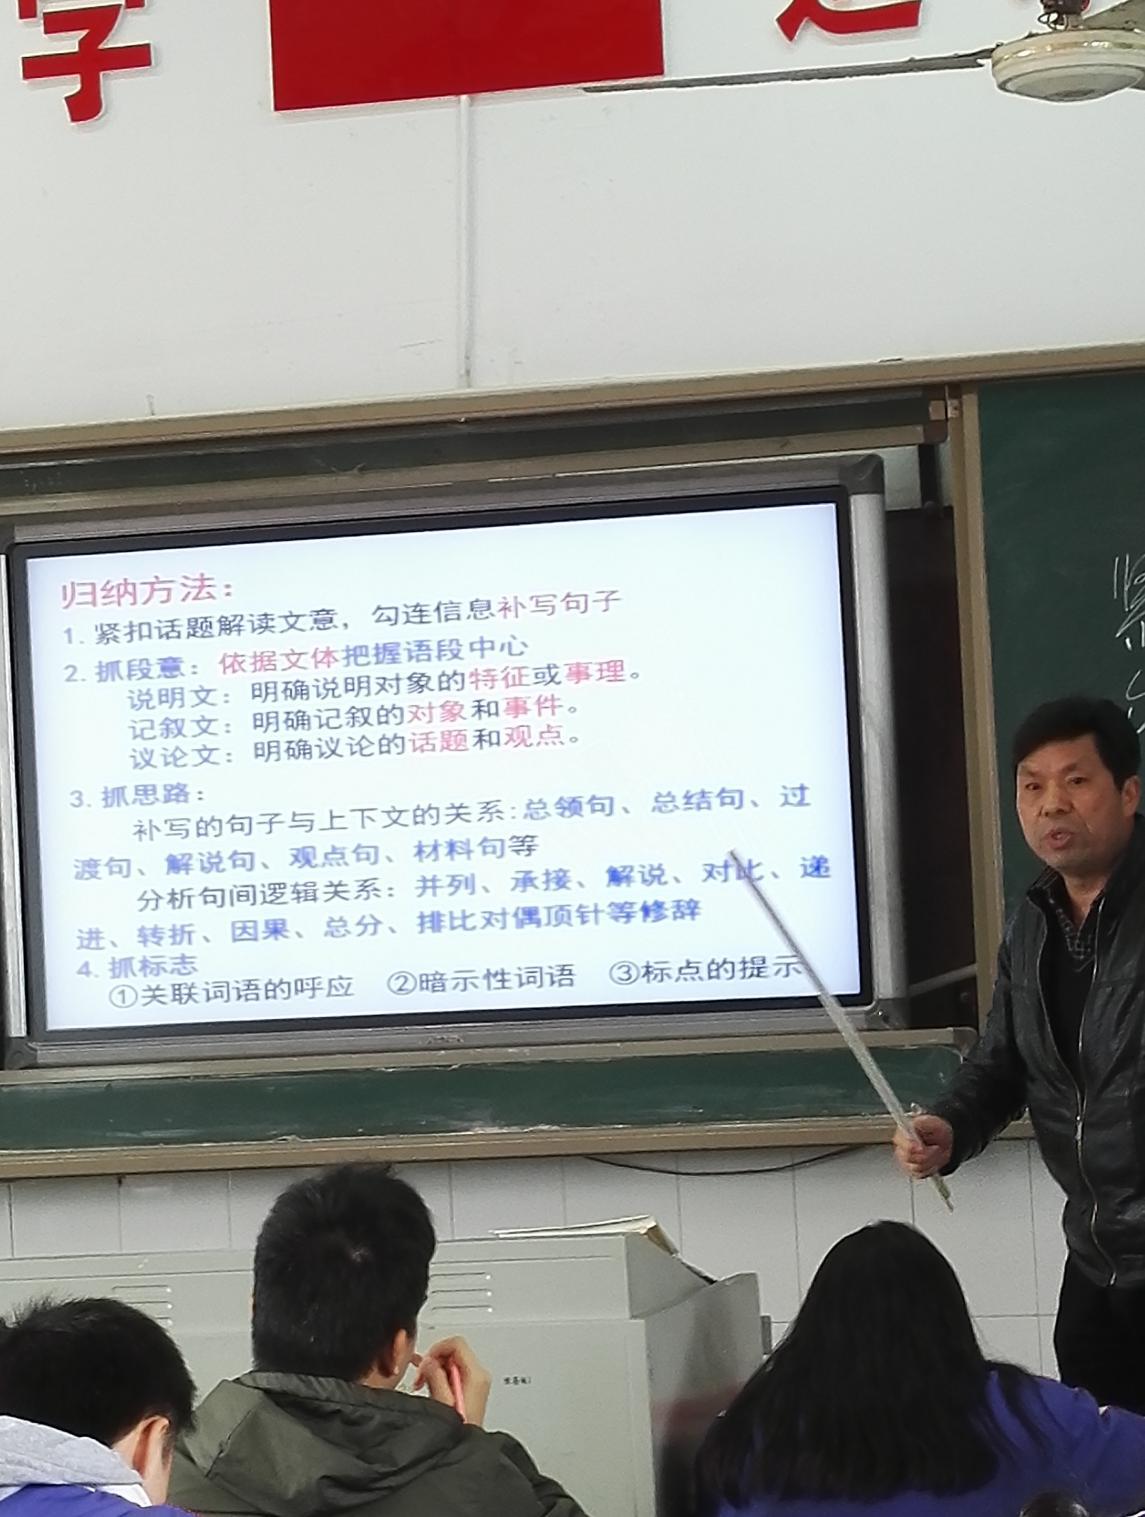 学
归纳方法：
1. 紧扣话题解读文意，勾连信息补写句子
2. 抓段意：依据文体把握语段中心
说明文：明确说明对象的特征或事理。
记叙文：明确记叙的对象和事件。
议论文：明确议论的话题和观点。
3. 抓思路：
补写的句子与上下文的关系：总领句、总结句、过
渡句、解说句、观点句、材料句等
分析句间逻辑关系：并列、承接、解说、对比、递
进、转折、因果、总分、排比对偶顶针等修辞
4. 抓标志
①关联词语的呼应 ②暗示性词语 ③标点的提示